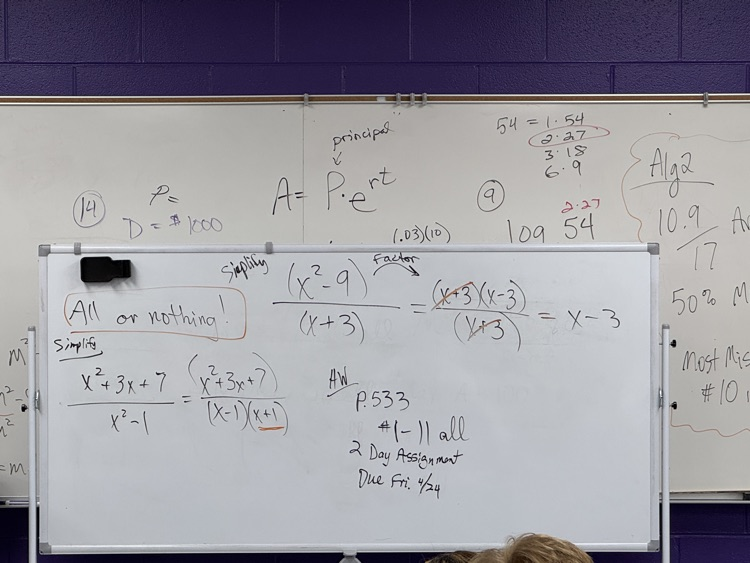 principal
54 = 1·54
2·27
3·18
6·9
A = P·e^rt
14
P =
D = $1000
9
2·27
109 54
(.03)(10)
Alg2
10.9
/17
50% M
Most Mis
#10
All or nothing!
Simplify
(x²-9)/(x+3) = (x+3)(x-3)/(x+3) = x-3
Factor
Simplify
x²+3x+7/x²-1 = (x²+3x+7)/(x-1)(x+1)
HW
P.533
#1-11 all
2 Day Assignment
Due Fri. 4/24